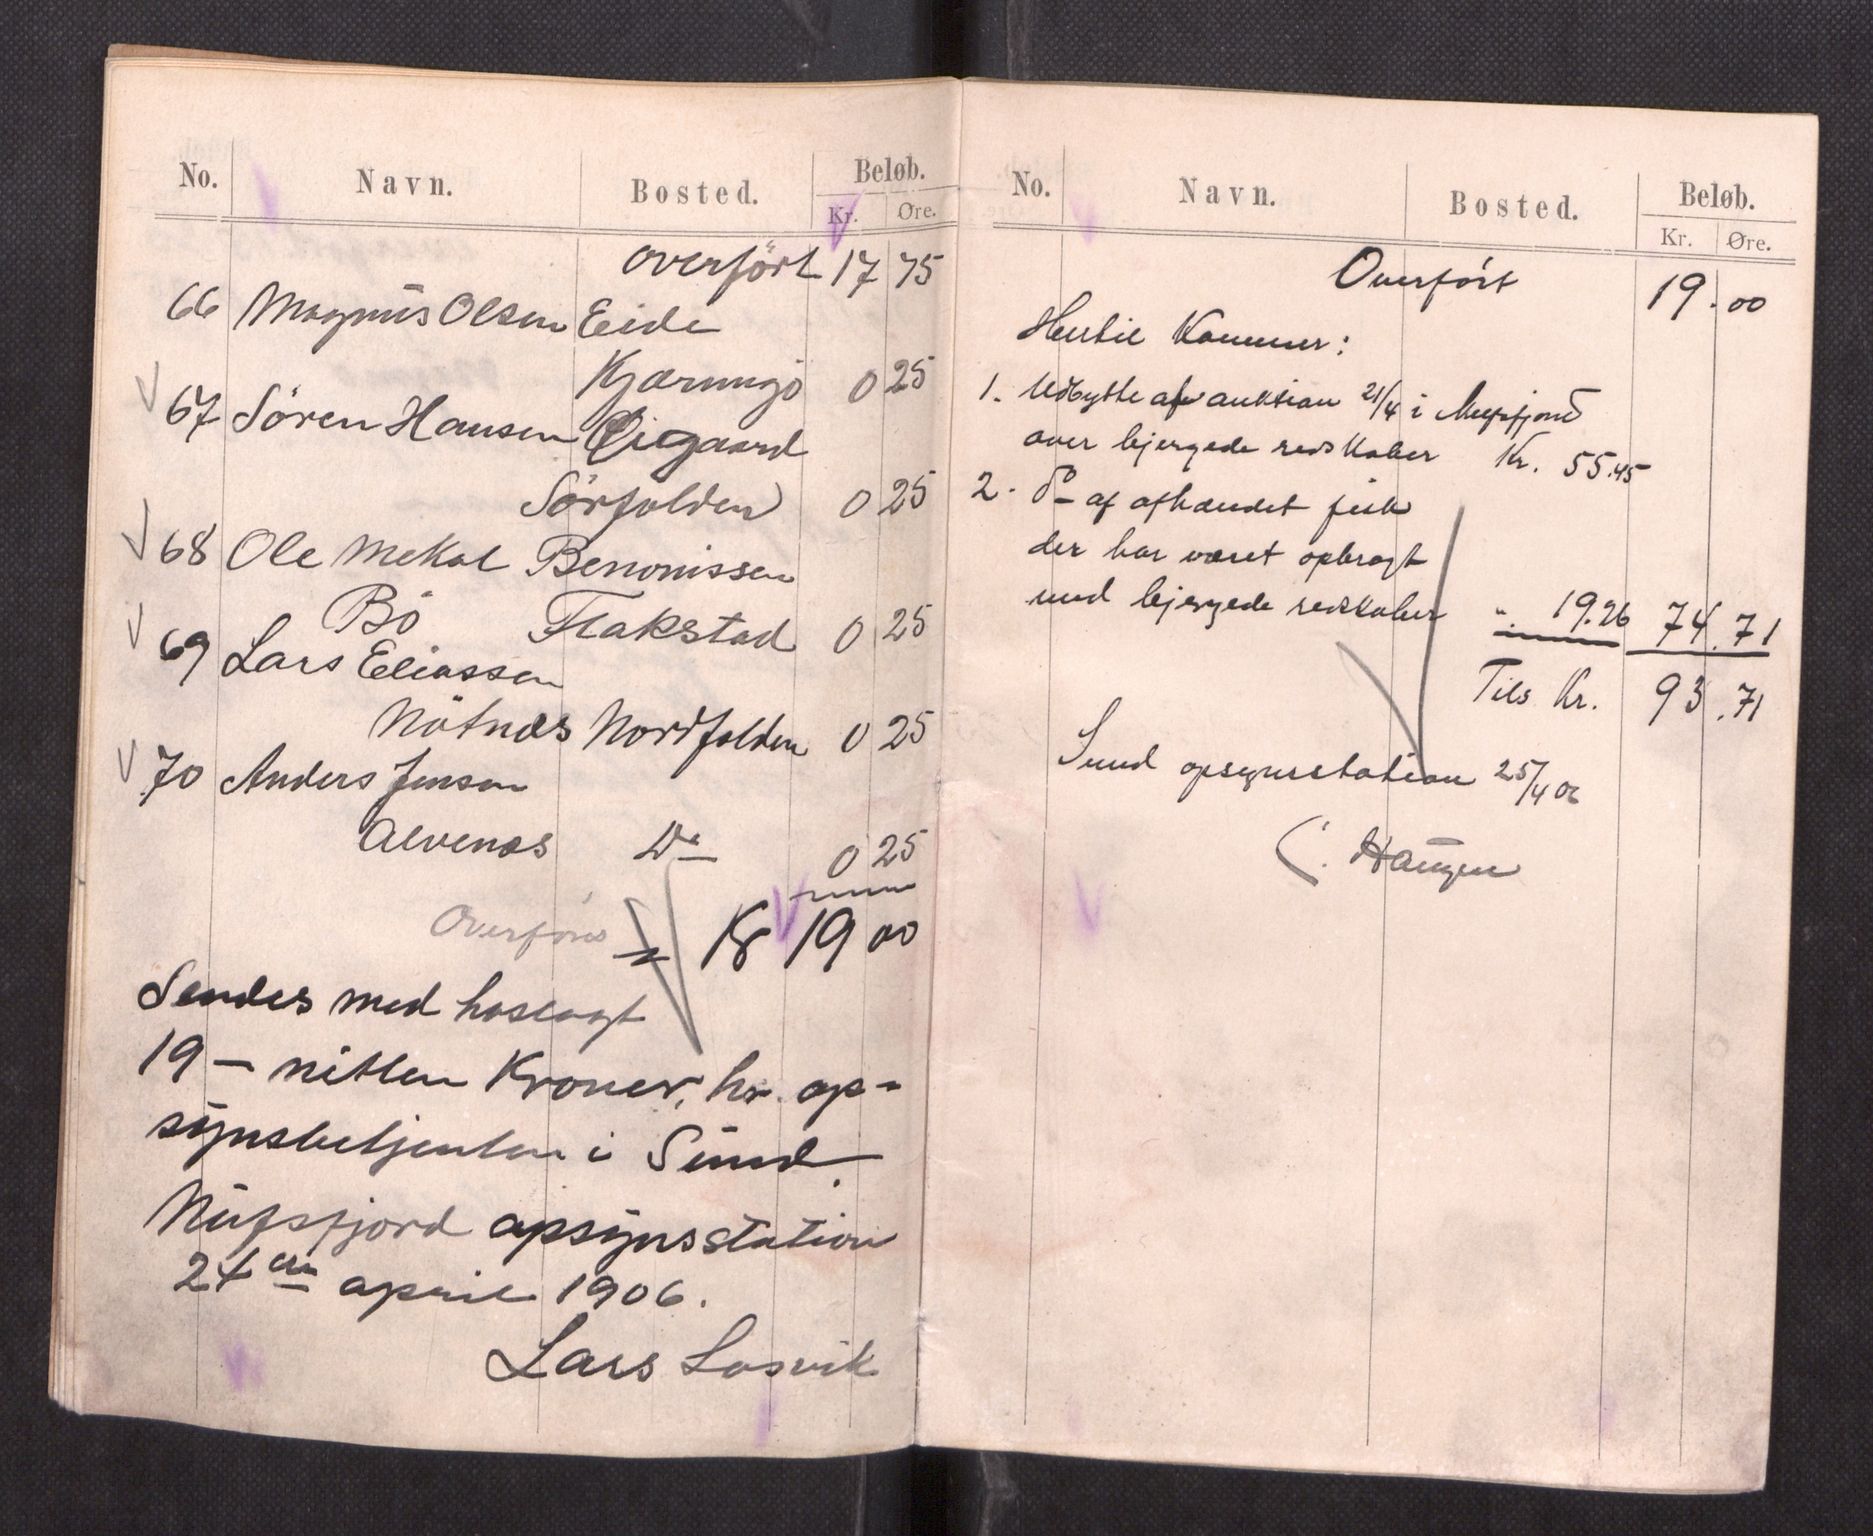 No. Navn. Bosted. Beløb.
Kr. Øre.
overfört 17 75
66 Magnus Olsen Eide
Kjærringö 0 25
67 Sören Hansen Öigaard
Sörfolden 0 25
68 Ole Mekal Benonissen
Bö Flakstad 0 25
69 Lars Eliassen
Nötnæs Nordfolden 0 25
70 Anders Jensen
Alvenæs Do 0 25
Overføres Kr 19 00
Sendes med hoslagt
19 — nitten Kroner, hr. op-
synsbetjenten i Sund.
Nufsfjord opsynsstation
24en april 1906.
Lars Losvik
No. Navn. Bosted. Beløb.
Kr. Øre.
Overfört 19.00
Hertil Kommer:
1. Udbytte af auktion 21/4 i Nufsfjord
over bjergede redskaber Kr. 55.45
2. do af afhændet fisk
der har været opbragt
med bjergede redskaber " 19.26 74.71
Tils Kr. 93.71
Sund opsynsstation 25/4 06
Haugen